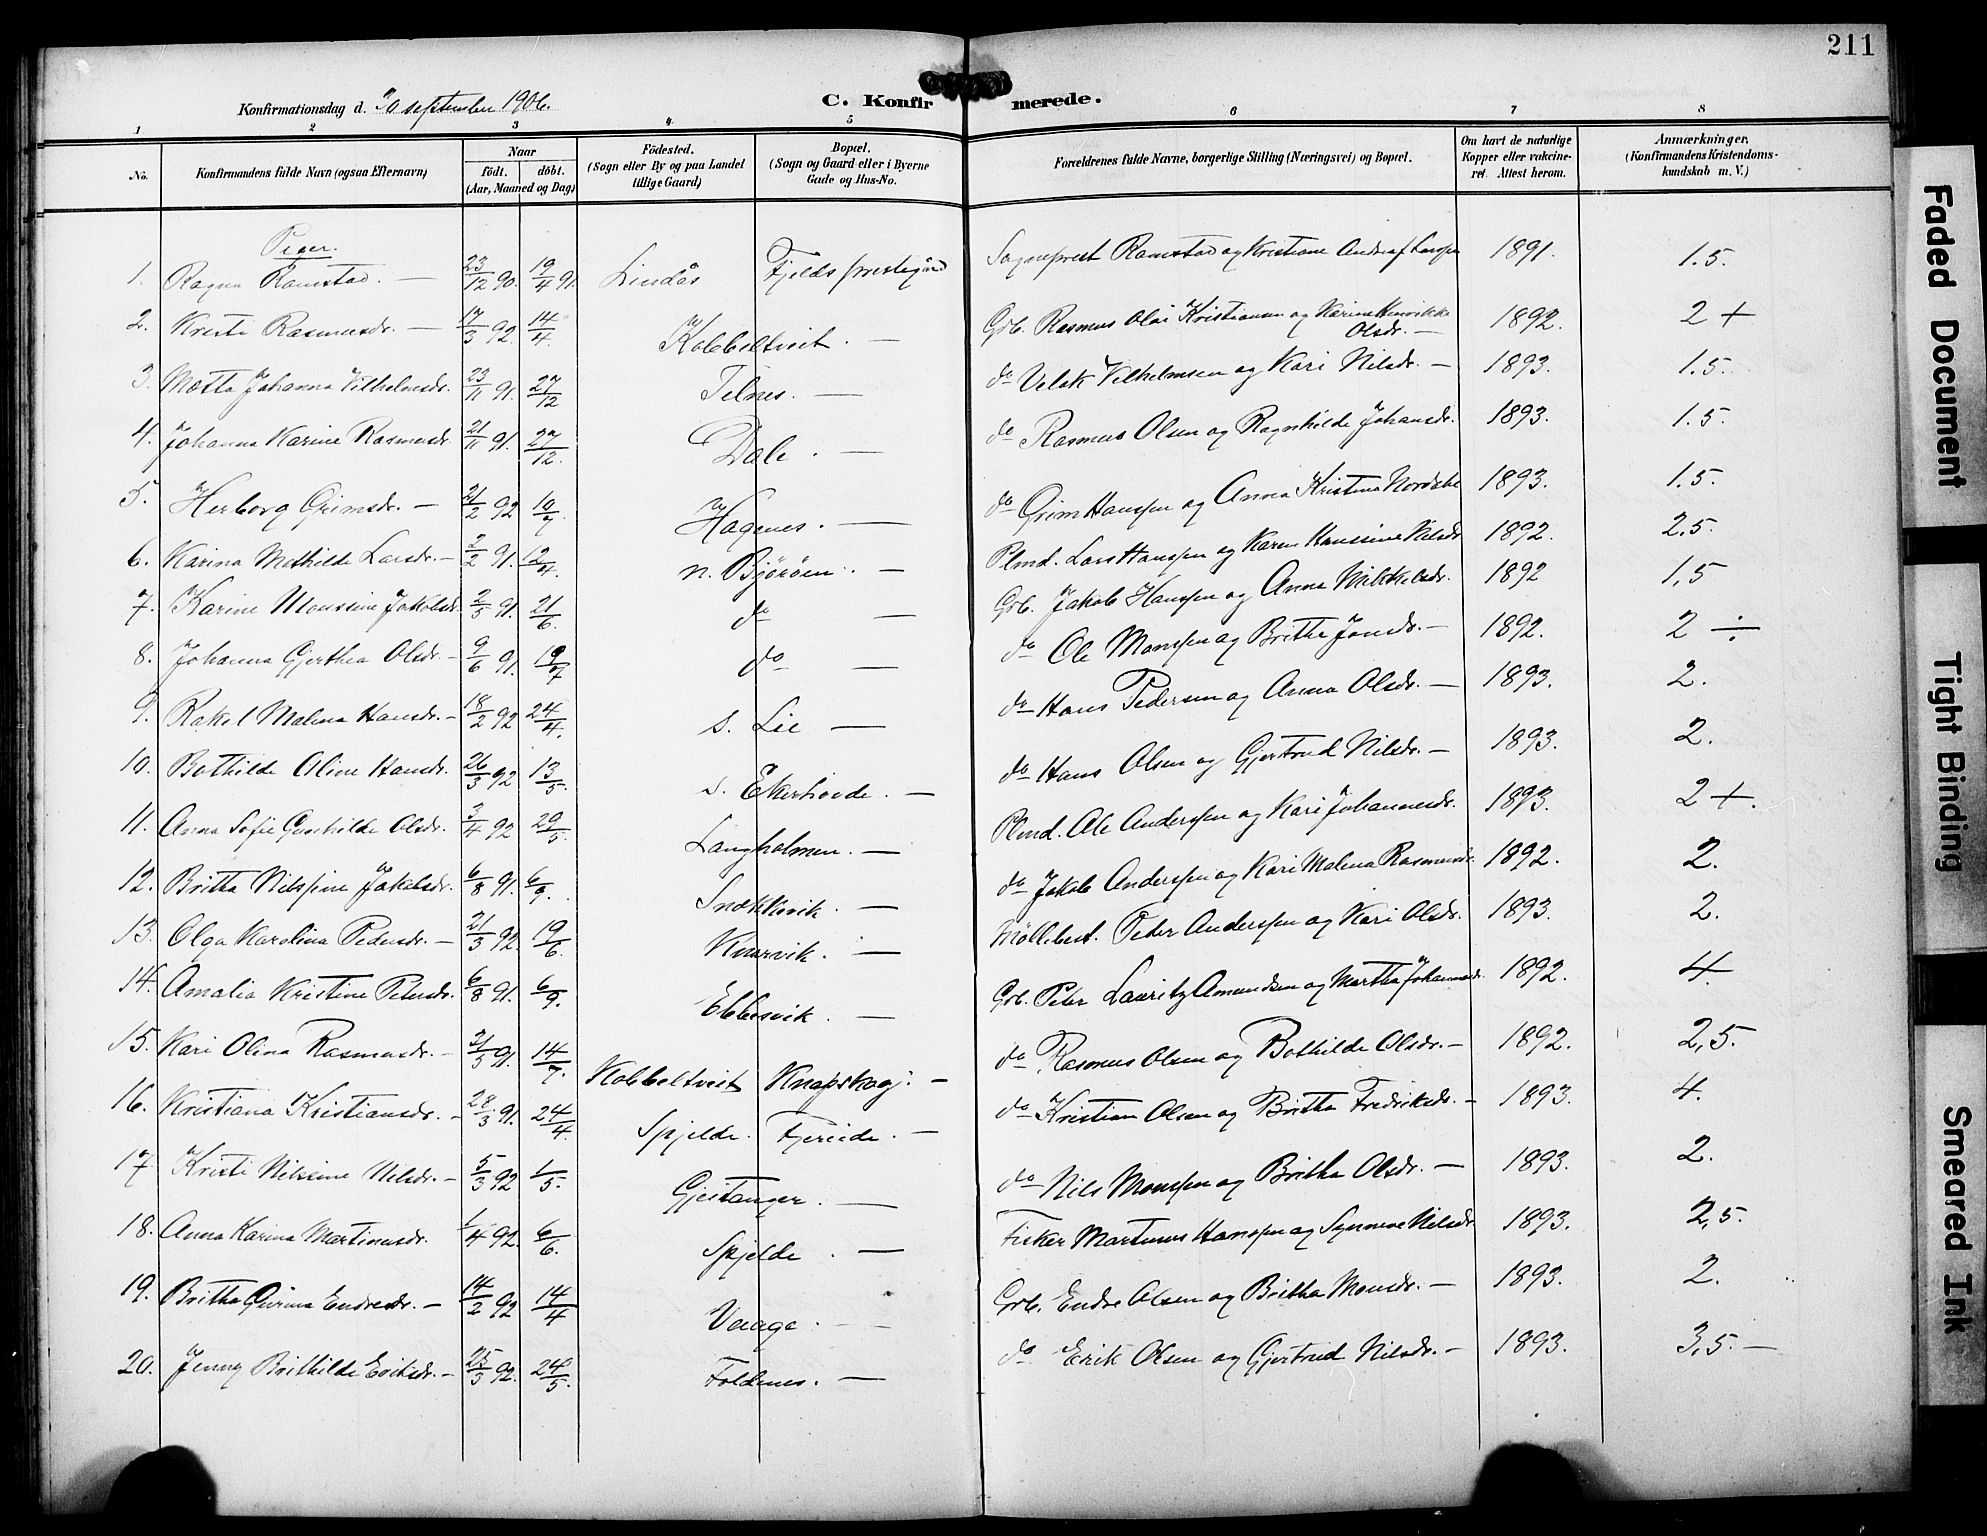 211
Konfirmationsdag d. 30 september 1906.
C. Konfirmerede.
1 2 3 4 5 6 7 8
No. Konfirmandens fulde Navn (ogsaa Efternavn) Naar födt. döbt. (Aar, Maaned og Dag) Födested. (Sogn eller By og paa Landet tillige Gaard) Bopæl. (Sogn og Gaard eller i Byerne Gade og Hus-No. Forældrenes fulde Navne, borgerlige Stilling (Næringsvei) og Bopæl. Om havt de naturlige Kopper eller vakcineret. Attest herom. Anmærkninger. (Konfirmandens Kristendomskundskab m. V.)
Piger.
1. Ragna Ramstad. — 23/12 90. 19/4 91. Lindås Fjelds prestegård Sogneprest Ramstad og Kristiane 1891. 1.5.
2. Kristi Rasmusdr. — 17/3 92. 14/4. Kobbeltveit. — Grb. Rasmus Olai Kristiansen og Karine Henrikke Olsdr. — 1892. 2 +
3. Mætta Johanna Vilhelmsdr. 23/11 91. 27/12 Telnes. — do Velok Vilhelmsen og Kari Nilsdr. — 1893. 1.5.
4. Johanna Karine Rasmusdr. 21/11 91. 27/12. Dale. — do Rasmus Olsen og Ragnhilde Johansdr. 1893. 1.5.
5. Herborg Grimsdr. — 21/2 92 10/7. Hagenes. — do Grim Hanssen og Anna Kristina Nordahl 1893. 1.5.
6. Karina Mathilde Larsdr. — 2/2 91. 12/4. n. Björöen. — Plmd. Lars Hanssen og Karen Hanssine Nilsdr 1892. 2.5.
7. Karine Monsine Jakobsdr. 2/5 91. 21/6. do — Grb. Jakob Hanssen og Anna Nilsdr. 1892 1,5
8. Johanna Gjerthea Olsdr. — 9/6 91. 19/7 do — do Ole Monssen og Britha Jonsdr. — 1892. 2 ÷
9. Rakel Malena Hansdr. — 18/2 92 24/4. s. Lie — do Hans Pedersen og Anna Olsdr. — 1893. 2.
10. Bothilde Oline Hansdr. 26/3 92 13/5. s. Ekerhovde. — do Hans Olsen og Gjertrud Nilsdr. — 1893. 2.
11. Anna Sofie Gunhilde Olsdr. 3/4 92 29/5. Langholmen. — Plmd. Ole Anderssen og Kari Johannesdr. 1893. 2 +.
12. Britha Nilssine Jakobsdr. 6/8 91. 6/9. Snekkevik. — do Jakob Anderssen og Kari Malena Rasmusdr. 1892. 2.
13. Olga Karolina Pedersdr. — 21/3 92. 19/6. Knarvik. — Möllebest. Peter Anderssen og Kari Olsdr. 1893. 2.
14. Amalia Kristine Petersdr. 6/8 91. 6/9. Ebbesvik. — Grb. Peter Lauritz Amundsen og Martha Johannesdr. 1892. 4.
15. Kari Olina Rasmusdr. — 31/5 91. 14/7. Kobbeltveit Knapskog. — do Rasmus Olsen og Bothilde Olsdr. — 1892. 2,5.
16. Kristiana Kristiansdr. — 28/3 91. 24/4. Spjelde. Fjereide. — do Kristian Olsen og Britha Fredriksdr. — 1893. 4.
17. Kristi Nilssine Nilsdr. — 5/3 92 1/5. Gjeitanger. — do Nils Monssen og Britha Olsdr. — 1893. 2.
18. Anna Karina Martinusdr. 1/4 92. 6/6. Spjelde. — Fisker Martinus Hanssen og Synneve Nilsdr 1893. 2,5.
19. Britha Gurina Endresdr. — 14/2 92 14/4 Vaage. — Grb. Endre Olsen og Britha Monsdr. — 1893. 2.
20. Jenny Brithilde Eriksdr. — 25/3 92. 24/5. Foldenes. — do Erik Olsen og Gjertrud Nilsdr. — 1893. 3,5. —
Faded Document
Tight Binding
Smeared Ink